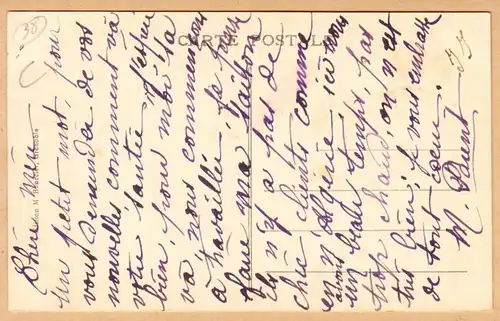 38
CARTE POSTALE
Chère
Un petit mot, pour
vous demander de vos
nouvelles comment va
votre santé j'espère
bien, pour moi sa
va nous commençons
à travailler, je
que ma
il n'y a pas de
chic clients comme
en Algérie ici nous
avons
un beau temps, pas
trop chaud, on n'est
très bien, je vous embrasse
de tout cœur.
M